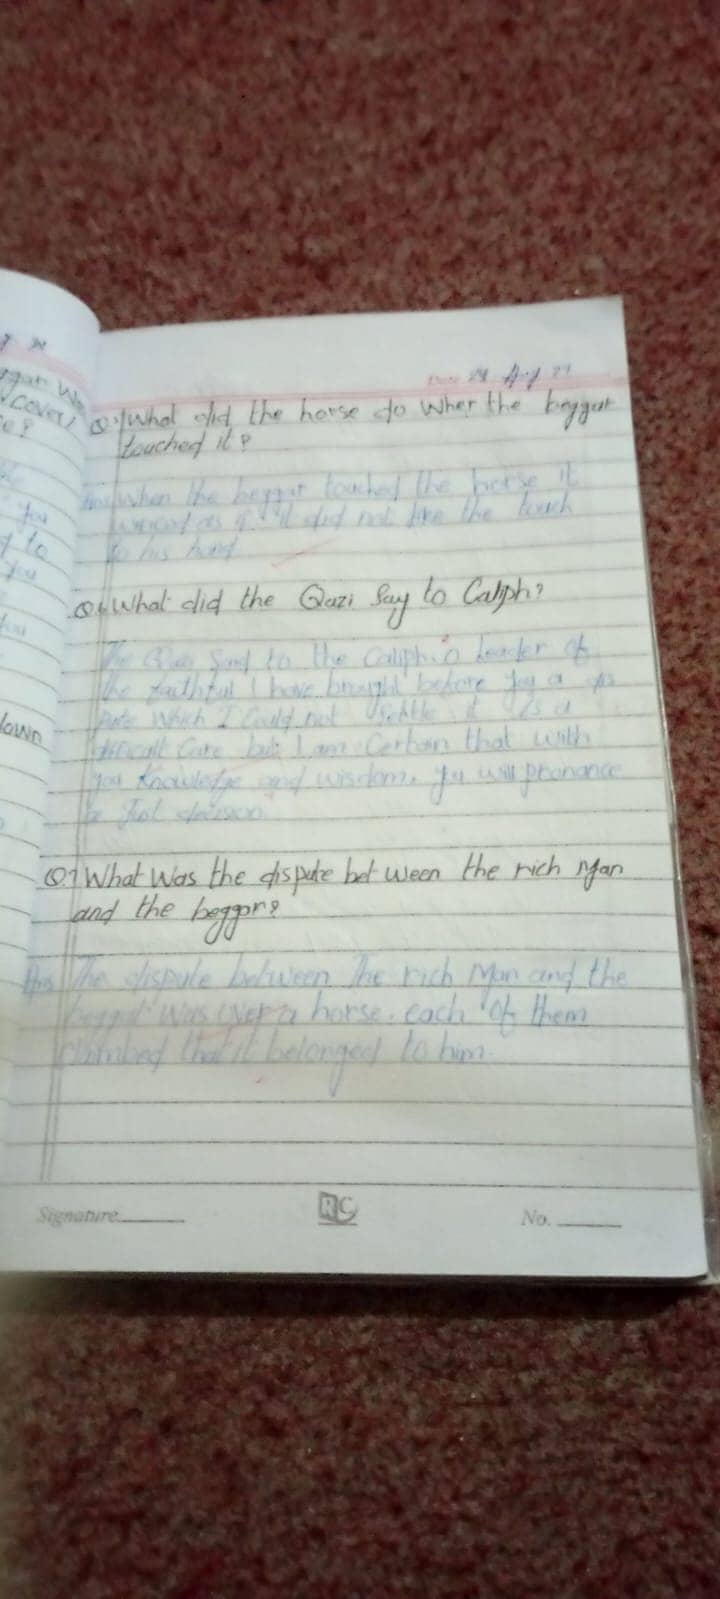 Date 29 Aug
Q.5 What did the horse do when the beggar
touched it?
Ans When the beggar touched the horse it
as if it did not like the touch
to his hand
Q6 What did the Qazi Say to Caliph?
The Qazi Said to the Caliph. O Leader of
the faithful I have brought before you a dis
pute which I Could not Settle it is a
difficult Case but I am Certain that with
you Knowledge and wisdom. you will pronance
Just decision
Q.7 What Was the dispute bet ween the rich Man
and the beggar?
Ans The dispute between The rich Man and the
beggar was over a horse. each of them
claimbed that it belonged to him.
Signature
RC
No.
down